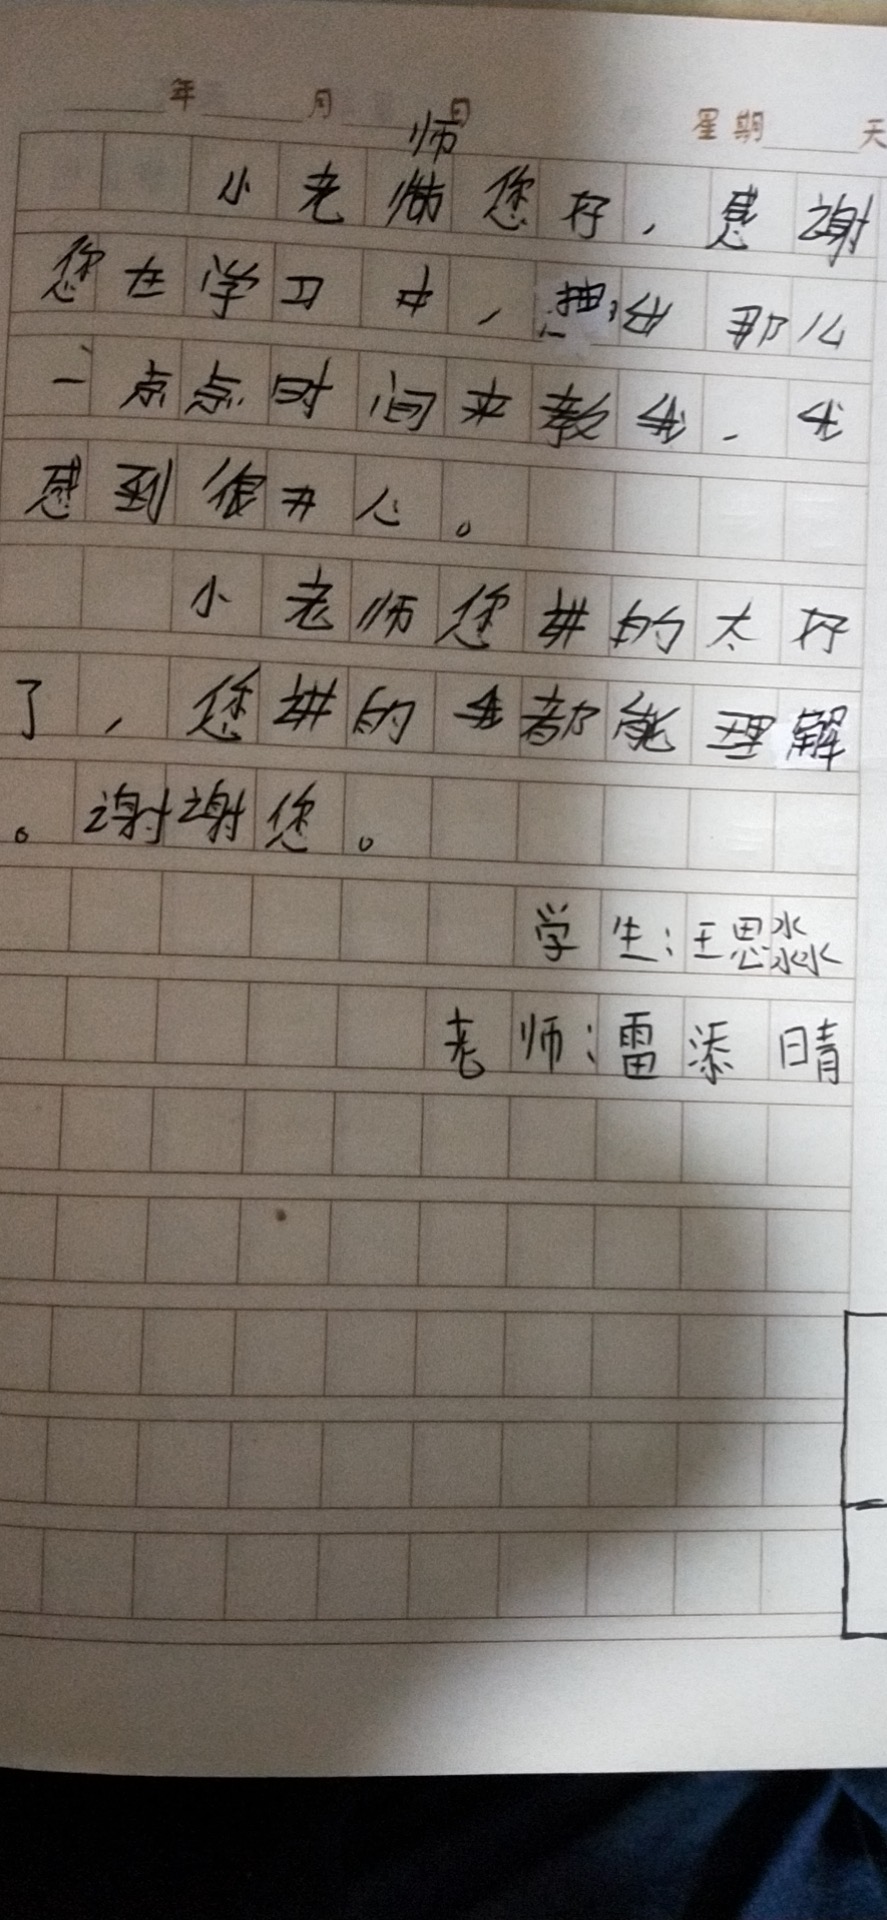 年 月 日 星期 天
师
小老师您好,感谢
您在学习中,抽出那么
一点点时间来教我,我
感到很开心。
小老师您讲的太好
了,您讲的我都能理解
。谢谢您。
学生:王思淼
老师:雷添晴